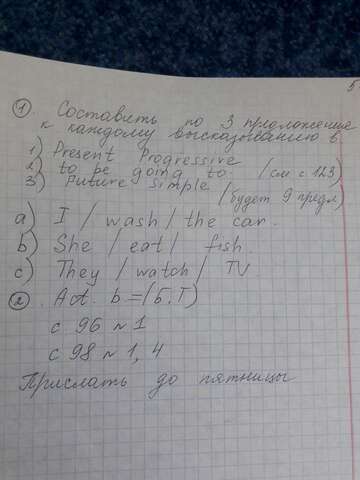 5
① Составить по 3 предложение
к каждому высказыванию в
1) Present Progressive
2) to be going to /см с 123)
3) Future simple
/будет 9 предл)
a) I / wash / the car.
b) She / eat / fish.
c) They / watch / TV
② Act. b = (Б, Т)
с 96 № 1
с 98 № 1, 4
Прислать до пятницы